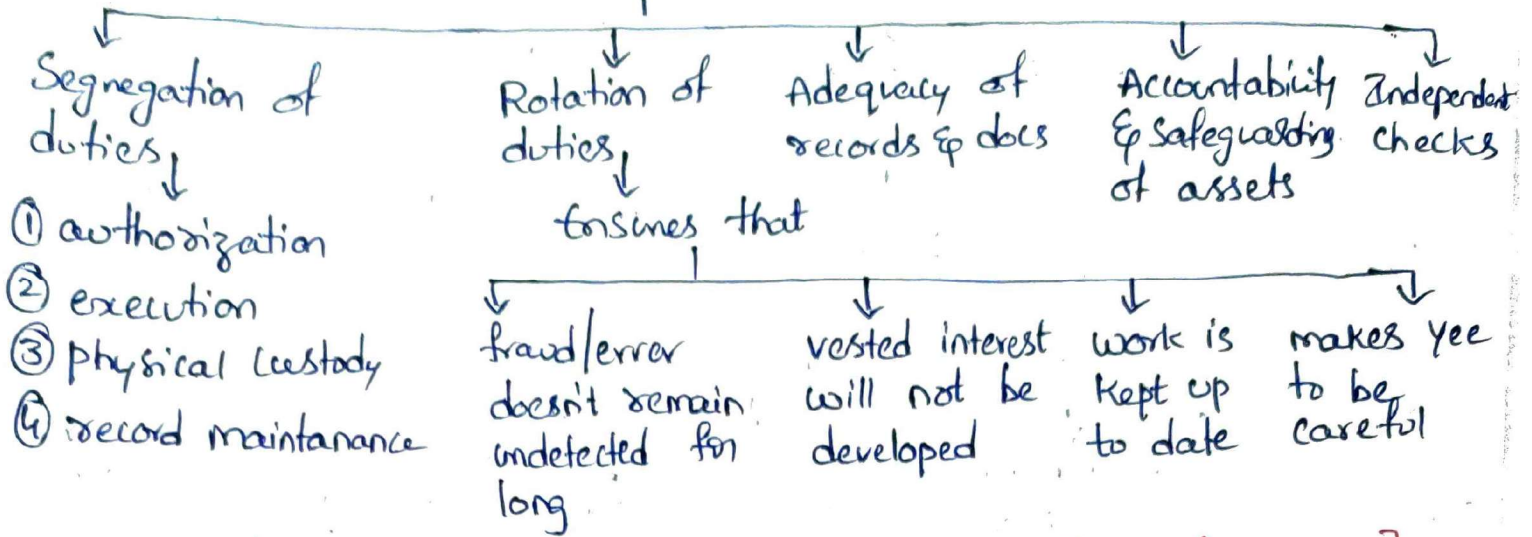 Segregation of
duties
① authorization
② execution
③ physical custody
④ record maintanance
Rotation of
duties
Ensures that
fraud/error
doesn't remain
undetected for
long
vested interest
will not be
developed
work is
kept up
to date
makes yee
to be
careful
Adequacy of
records & docs
Accountability
& safeguarding
of assets
Independent
checks